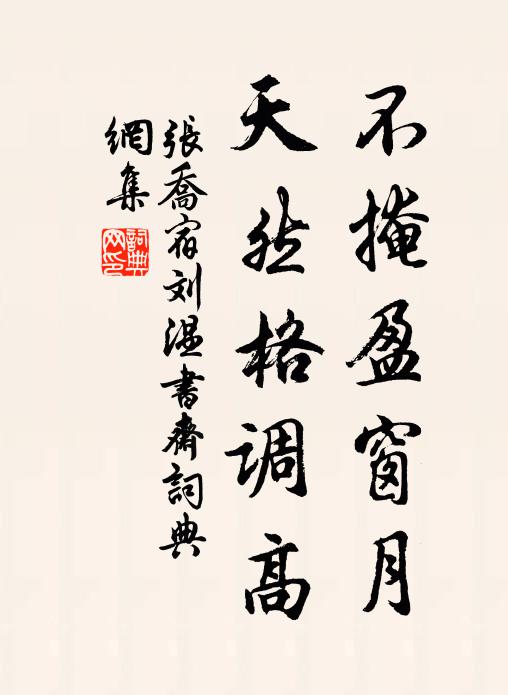 不掩盈窗月
天然格調高
張喬宿刘温書齋詞典
網集
詞典
网印